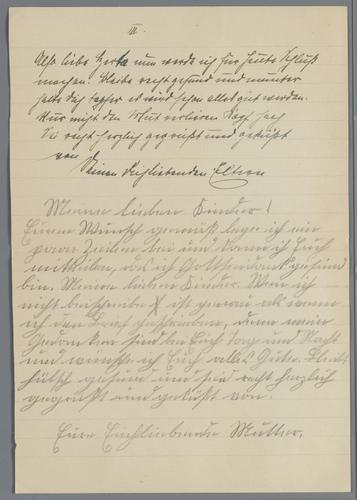 III.
Also liebe Herta nun werde ich für heute Schluß
machen. Bleibe recht gesund und munter
halte dich tapfer es wird schon alles gut werden.
Nur nicht den Mut verlieren
Sei recht herzlich gegrüßt und geküßt
von
Deinen Dichliebenden Eltern
Meine lieben Kinder!
Euren Wunsch gemäß lege ich ein
paar Zeilen bei und kann ich Euch
mitteilen, das ich Gott sei dank gesund
bin. Meine lieben Kinder. Wenn ich
nicht schreibe X ist genau als wenn
ich den Brief geschrieben, denn meine
Gedanken sind bei Euch Tag und Nacht
und wünsche ich Euch alles Gute. Bleibt
hübsch gesund und seid recht herzlich
gegrüßt und geküßt von.
Eure Euchliebende Mutter.